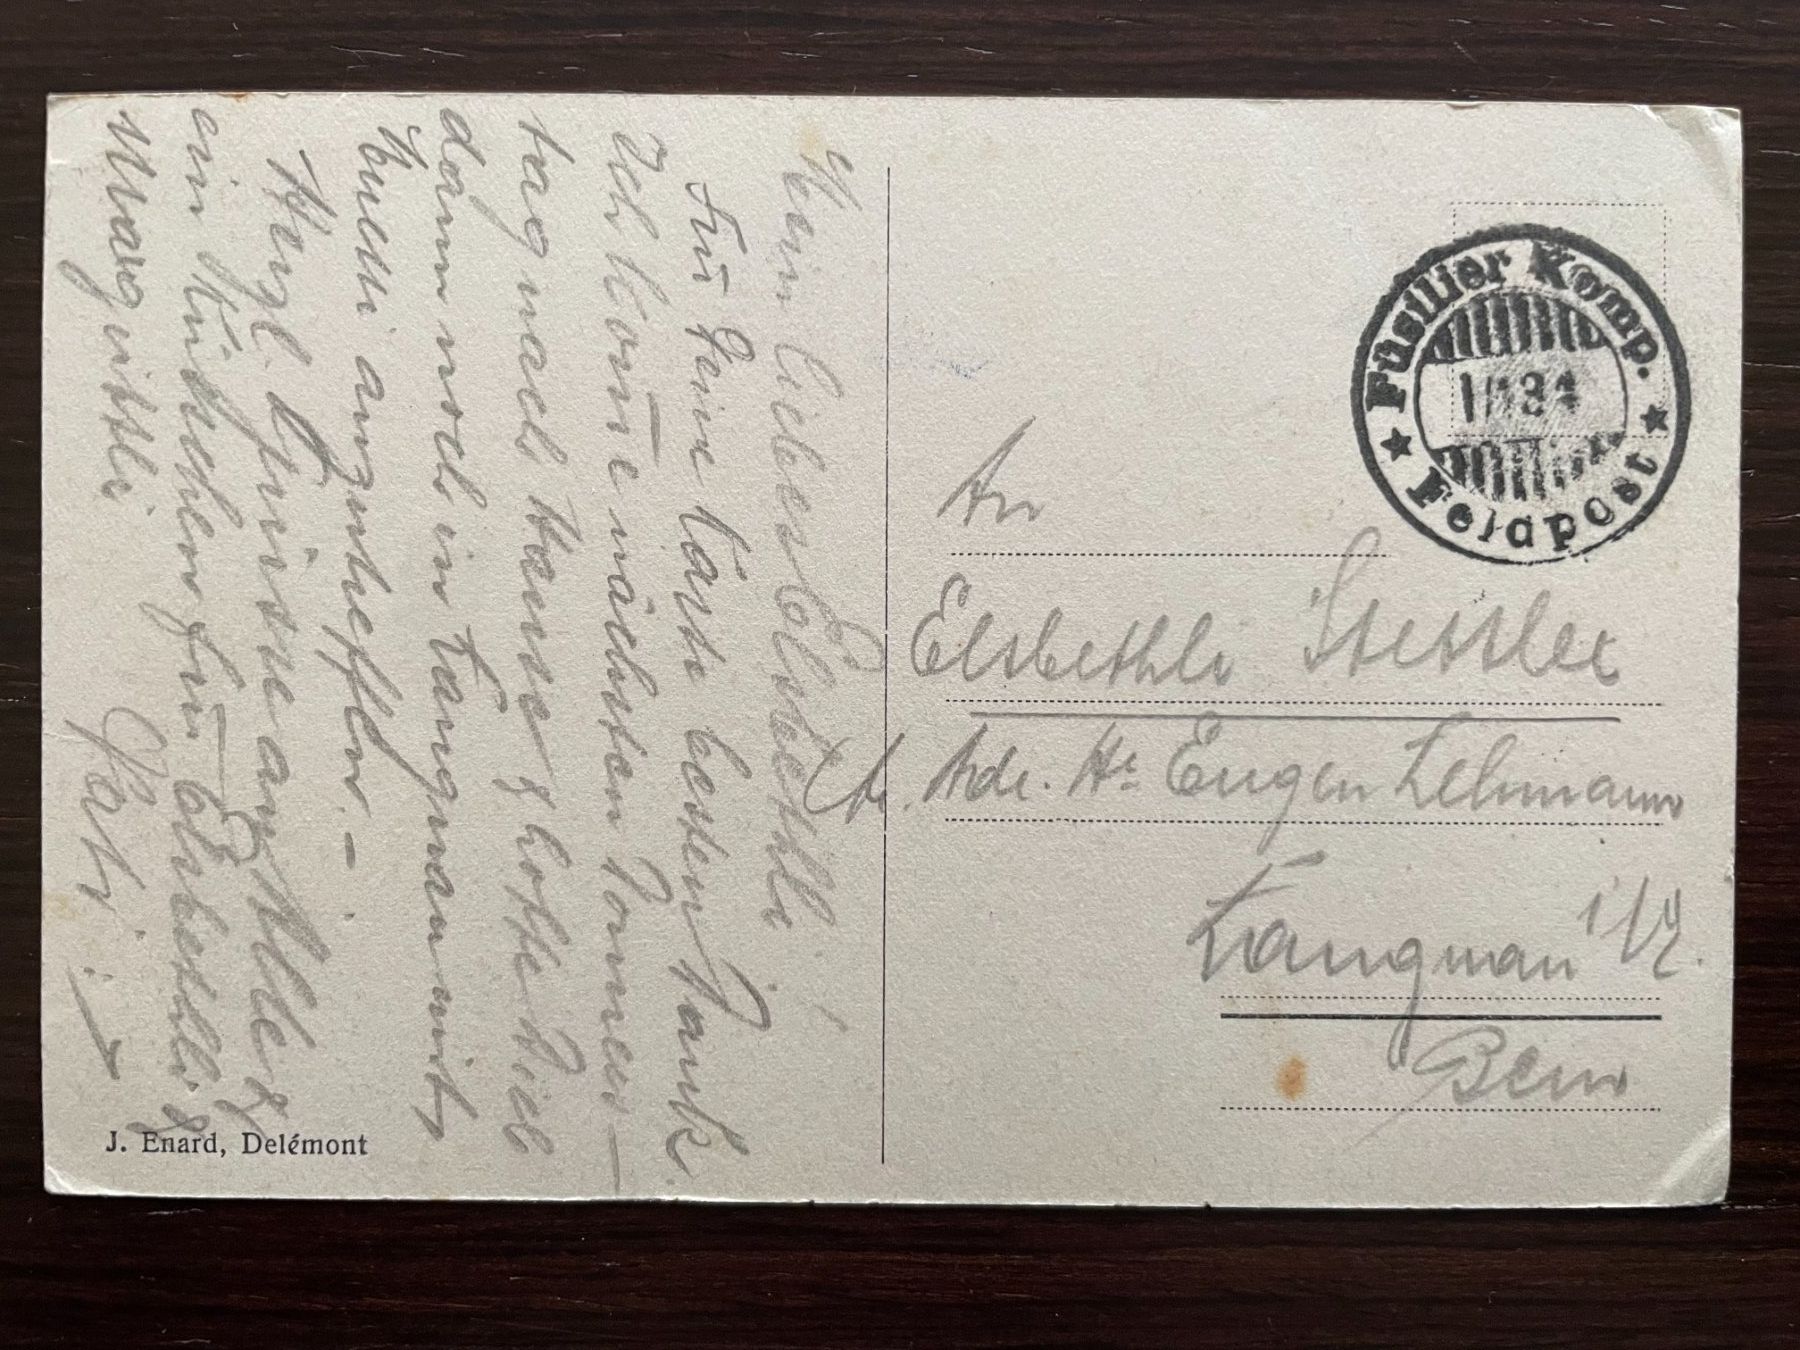 Mein liebes Elsbethli!
Für Deine Karte besten Dank.
Ich kom̅e nächsten Donners-
tag nach Hause & hoffe Dich
dann noch in Langnau mit
anzutreffen. –
Herzl. Grüsse an Alle &
ein Küsschen für Elsbethli &
Margritli
Papi.
J. Enard, Delémont
Füsilier Komp.
Feldpost
An
Elsbethli Stettler
Adr. Hr. Eugen Lehmann
Langnau i/E.
Bern